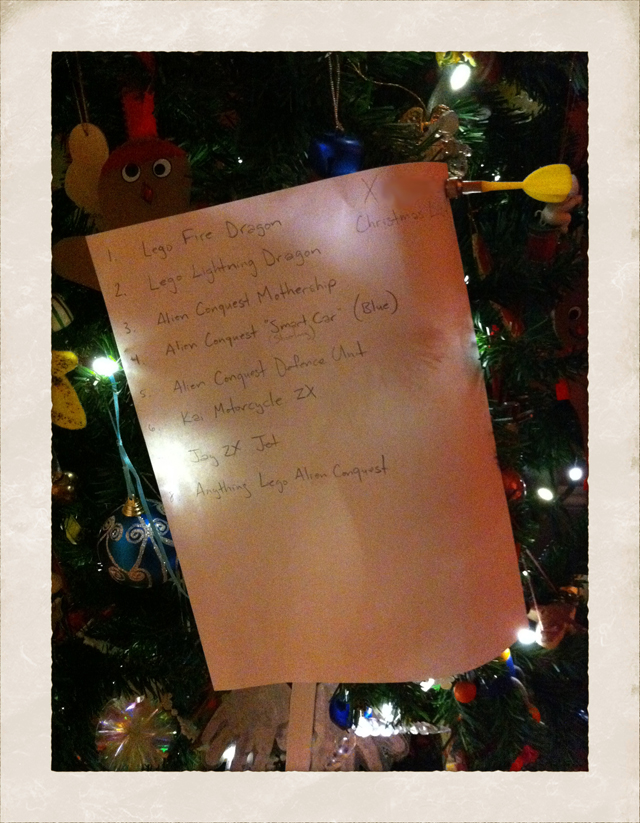 X
Christmas
1. Lego Fire Dragon
2. Lego Lightning Dragon
3. Alien Conquest Mothership
4 Alien Conquest "Smart Car" (Blue)
5. Alien Conquest Defence Unit
6. Kai Motorcycle ZX
Jay ZX Jet
Anything Lego Alien Conquest